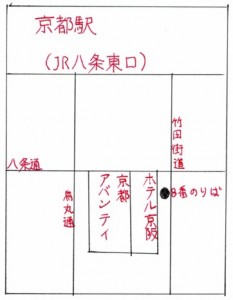 京都駅
(JR八条東口)
竹田街道
八条通
烏丸通
京都
アバンティ
ホテル京阪
8番のりば